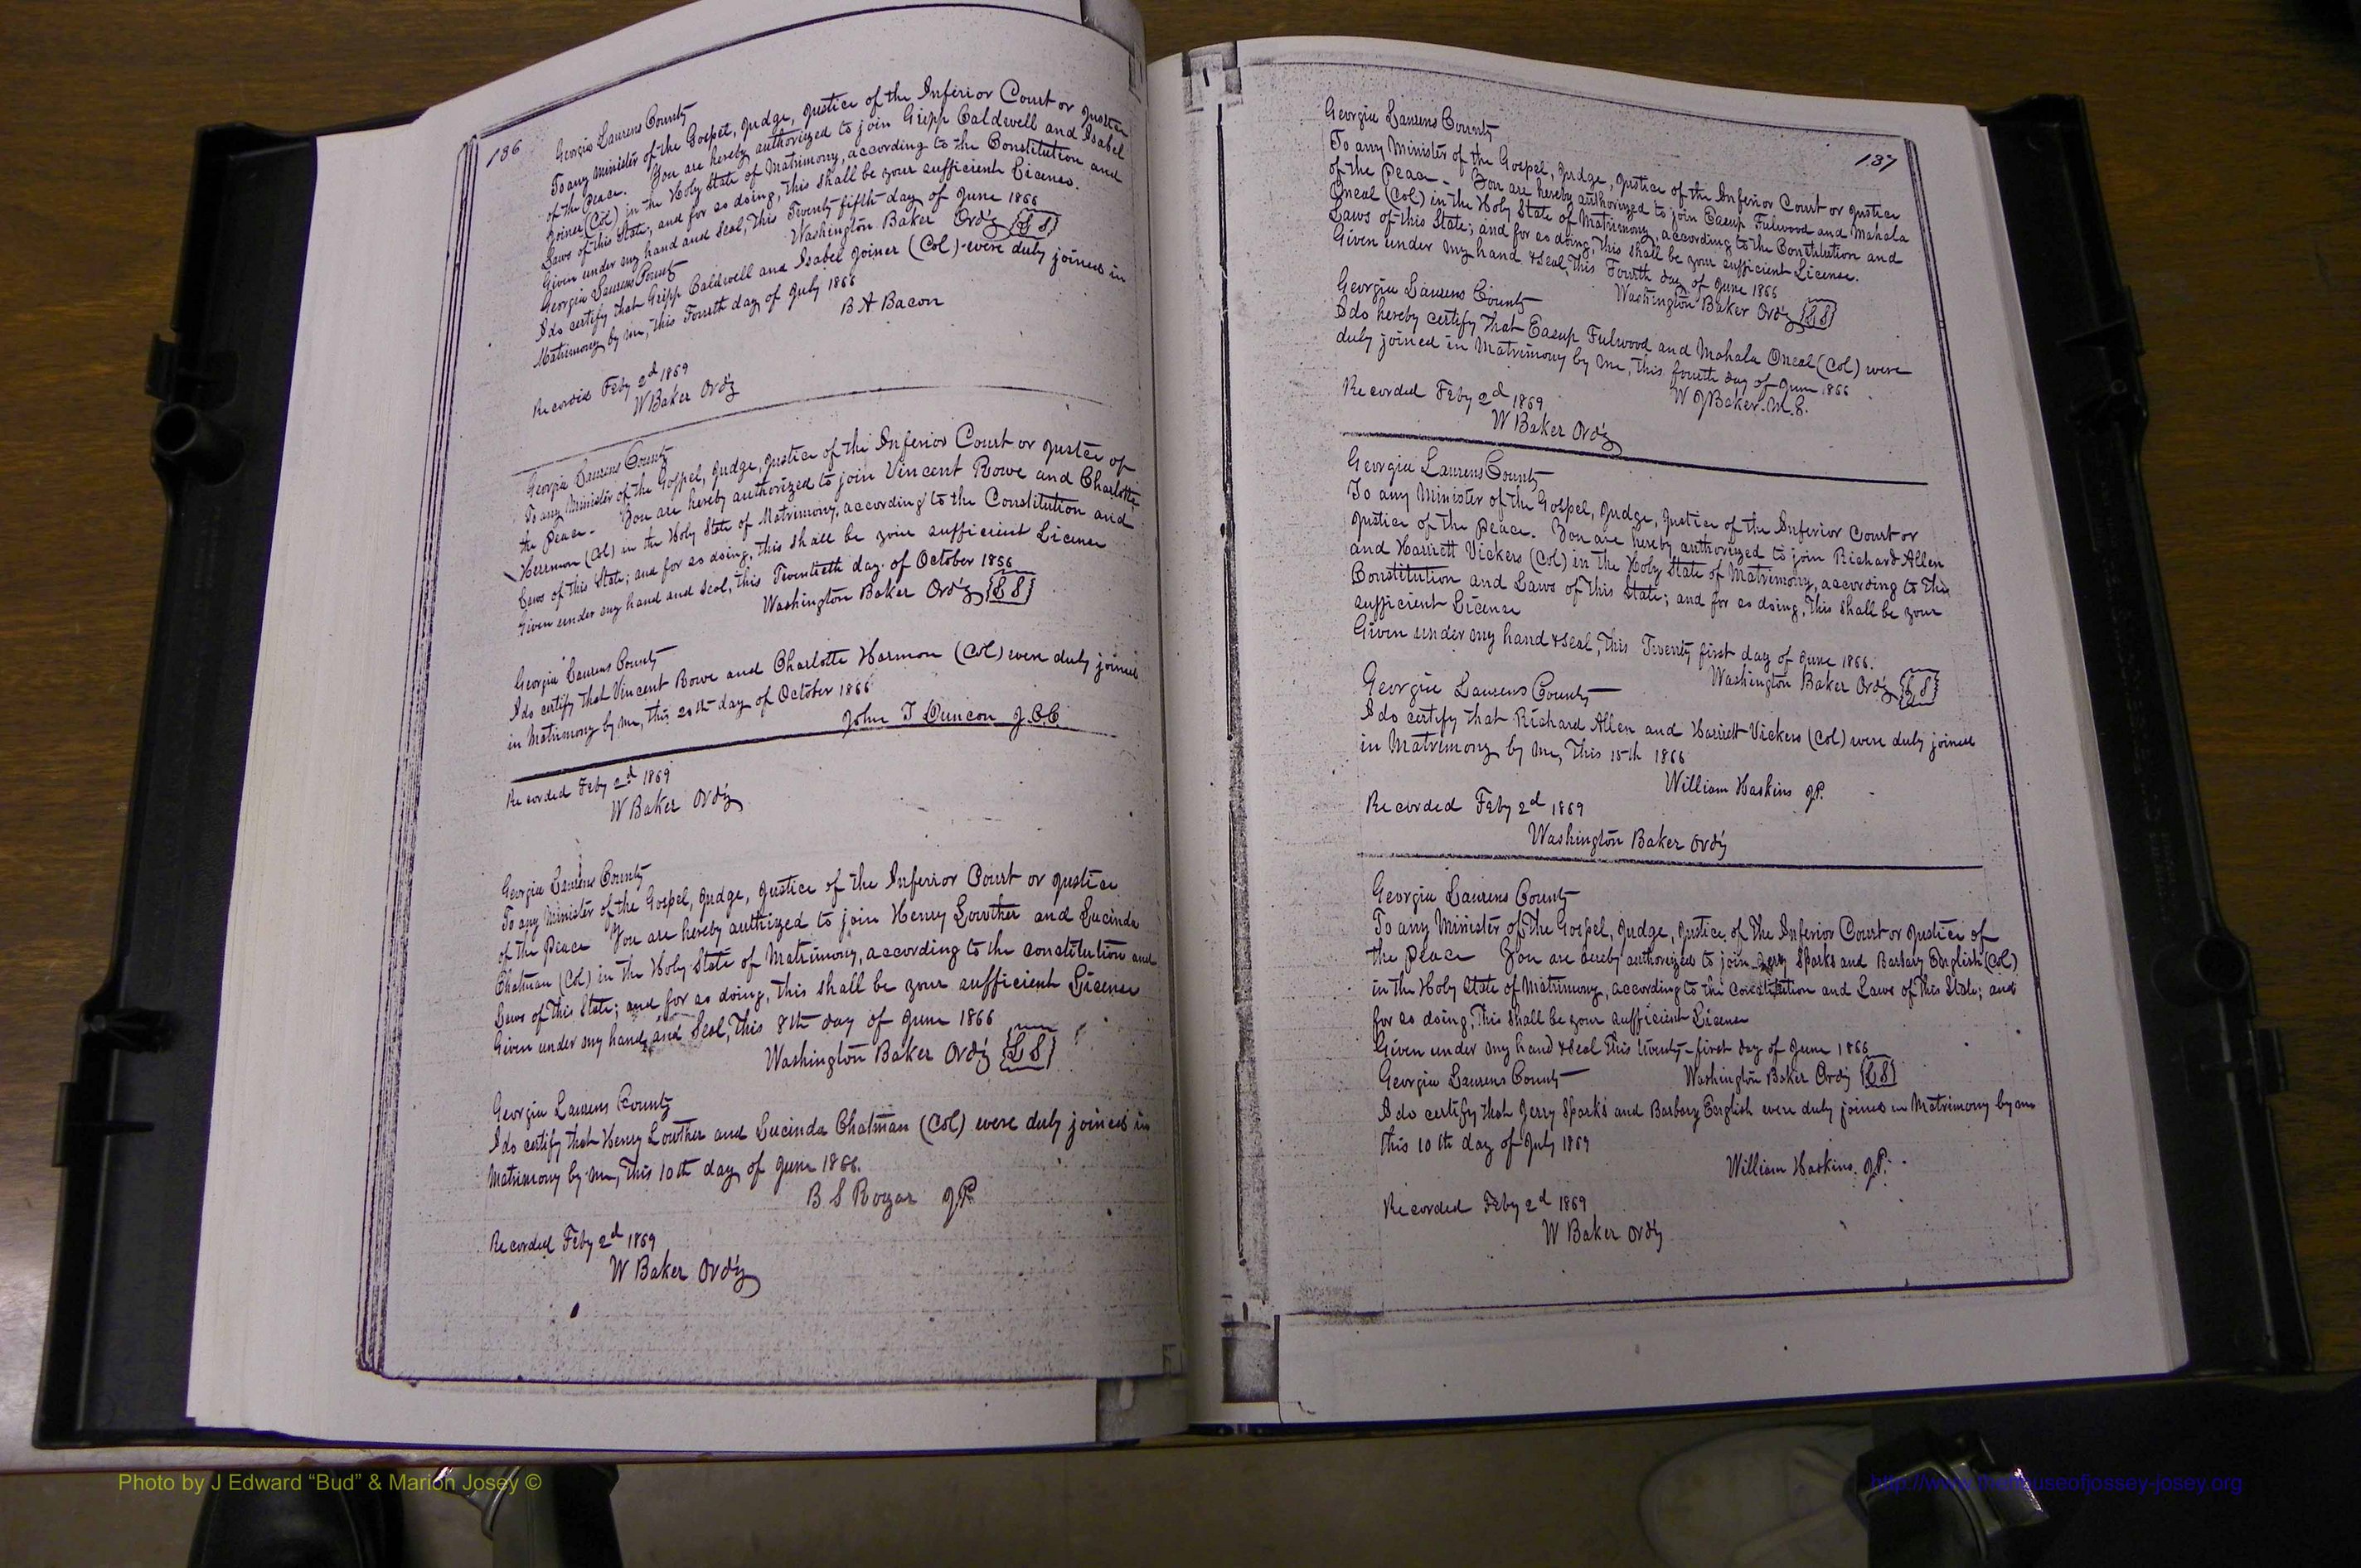 136
Georgia Laurens County
To any Minister of the Gospel, Judge, Justice of the Inferior Court or Justice
of the Peace. You are hereby authorized to join Gripp Caldwell and Isabel
Joiner (Col) in the Holy State of Matrimony, according to the Constitution and
Laws of this State, and for so doing, this shall be your sufficient License.
Given under my hand and seal, this Twenty fifth day of June 1866
Washington Baker Ord'y {LS}
Georgia Laurens County
I do certify that Gripp Caldwell and Isabel Joiner (Col) were duly joined in
Matrimony by me, this Fourth day of July 1866
B A Bacon
Recorded Feby 2d 1869
W Baker Ord'y
Georgia Laurens County
To any Minister of the Gospel, Judge, Justice of the Inferior Court or Justice of
the Peace - You are hereby authorized to join Vincent Rowe and Charlotte
Herrmon (Col) in the Holy State of Matrimony, according to the Constitution and
Laws of this State; and for so doing, this shall be your sufficient License
Given under my hand and seal, this Twentieth day of October 1866
Washington Baker Ord'y {LS}
Georgia Laurens County
I do certify that Vincent Rowe and Charlotte Harmon (Col) were duly joined
in Matrimony by me, this 20th day of October 1866
John T Duncan J.C.C.
Recorded Feby 2d 1869
W Baker Ord'y
Georgia Laurens County
To any Minister of the Gospel, Judge, Justice of the Inferior Court or Justice
of the Peace You are hereby authrized to join Henry Lowther and Lucinda
Chatman (Col) in the Holy State of Matrimony, according to the constitution and
Laws of this State; and for so doing, this shall be your sufficient License
Given under my hand and Seal, this 8th day of June 1866
Washington Baker Ord'y {LS}
Georgia Laurens County
I do certify that Henry Lowther and Lucinda Chatman (Col) were duly joined in
Matrimony by me, this 10th day of June 1866.
B S Rogar J.P.
Recorded Feby 2d 1869
W Baker Ord'y
137
Georgia Laurens County
To any Minister of the Gospel, Judge, Justice of the Inferior Court or Justice
of the Peace - You are hereby authorized to join Easup Fulwood and Mahala
Oneal (Col) in the Holy State of Matrimony, according to the Constitution and
Laws of this State; and for so doing, this shall be your sufficient License.
Given under my hand & seal, this Fourth day of June 1866
Washington Baker Ord'y {LS}
Georgia Laurens County
I do hereby certify that Easup Fulwood and Mahala Oneal (Col) were
duly joined in Matrimony by me, this fourth day of June 1866
W J Baker. M.G.
Recorded Feby 2d 1869
W Baker Ord'y
Georgia Laurens County
To any Minister of the Gospel, Judge, Justice of the Inferior Court or
Justice of the Peace. You are hereby authorized to join Richard Allen
and Harriett Vickers (Col) in the Holy State of Matrimony, according to the
Constitution and Laws of this State; and for so doing, this shall be your
sufficient License
Given under my hand & seal, this Twenty first day of June 1866.
Washington Baker Ord'y {LS}
Georgia Laurens County
I do certify that Richard Allen and Harriett Vickers (Col) were duly joined
in Matrimony by me, this 15th 1866
William Haskins J.P.
Recorded Feby 2d 1869
Washington Baker Ord'y
Georgia Laurens County
To any Minister of the Gospel, Judge, Justice of the Inferior Court or Justice of
the Peace You are hereby authorized to join Jerry Sparks and Barbary English (Col)
in the Holy State of Matrimony, according to the Constitution and Laws of this State; and
for so doing, this shall be your sufficient License
Given under my hand & Seal this twenty-first day of June 1866
Washington Baker Ord'y {LS}
Georgia Laurens County
I do certify that Jerry Sparks and Barbary English were duly joined in Matrimony by me
this 10th day of July 1869
William Haskins. J.P.
Recorded Feby 2d 1869
W Baker Ord'y
Photo by J Edward “Bud” & Marion Josey ©
http://www.thehouseofjossey-josey.org